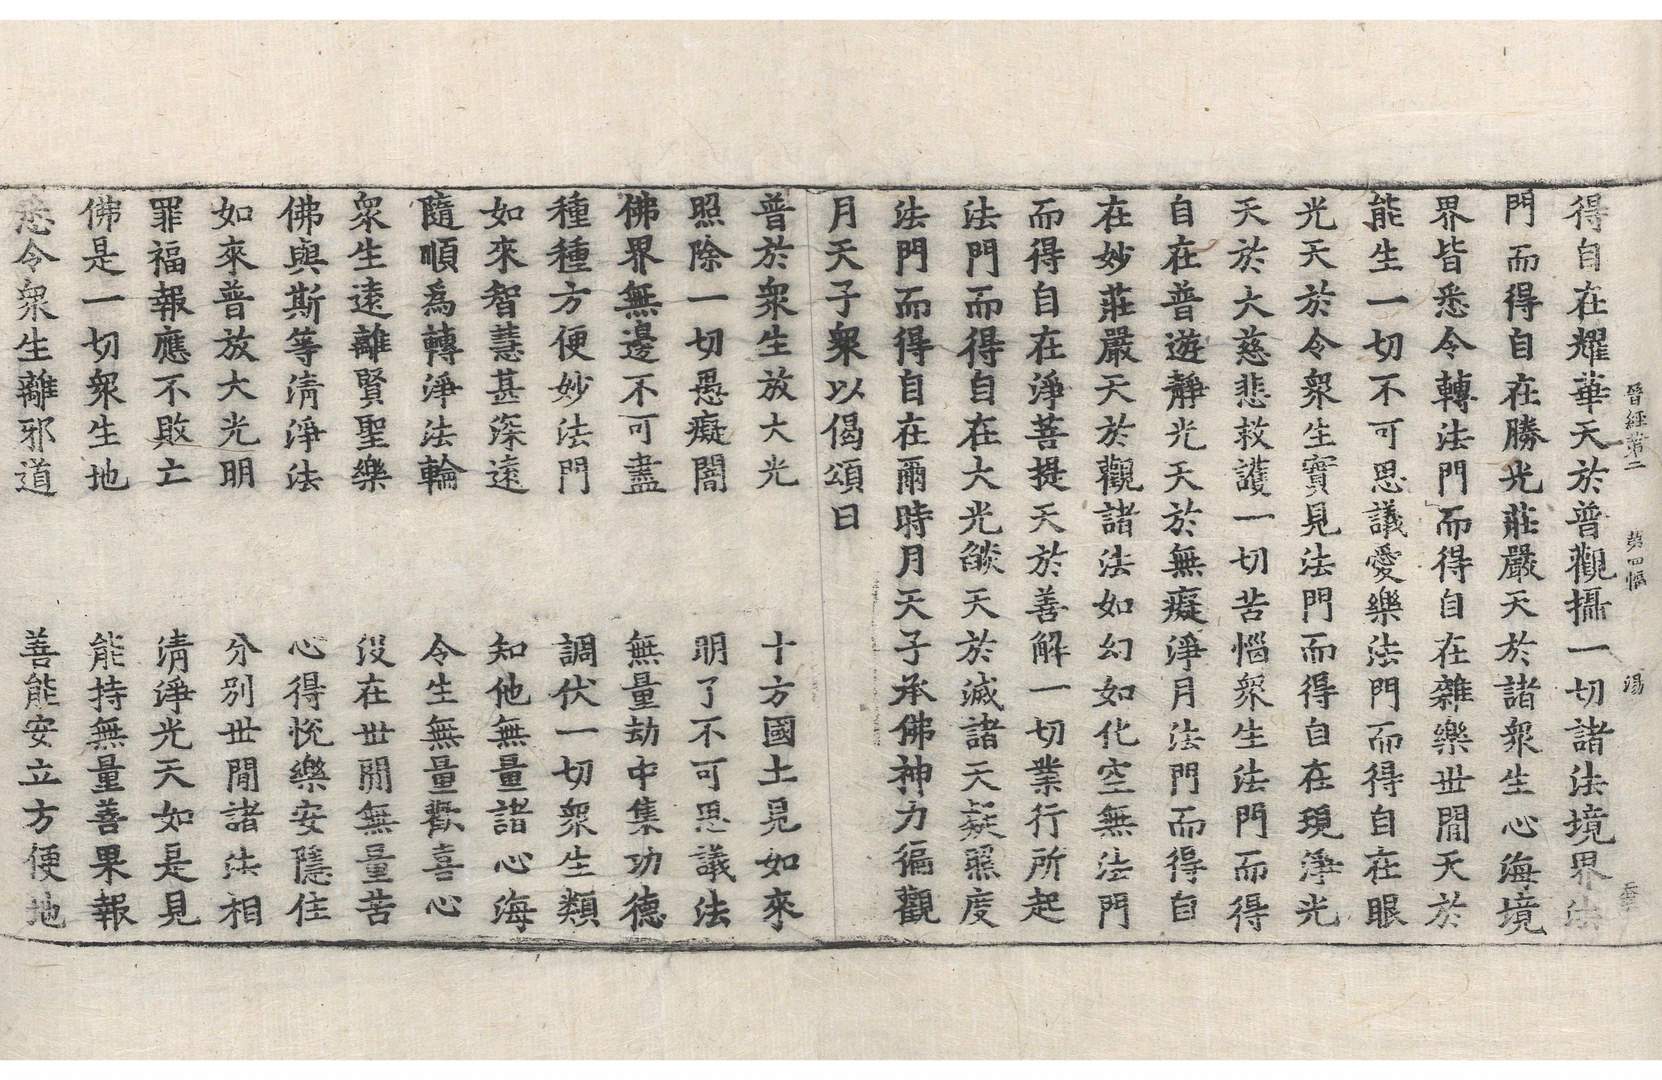 晉經第二 第四幅 湯
得自在耀華天於普觀攝一切諸法境界法
門而得自在勝光莊嚴天於諸衆生心海境
界皆悉令轉法門而得自在雜樂世間天於
能生一切不可思議愛樂法門而得自在眼
光天於令衆生實見法門而得自在現淨光
天於大慈悲救護一切苦惱衆生法門而得
自在普遊靜光天於無癡淨月法門而得自
在妙莊嚴天於觀諸法如幻如化空無法門
而得自在淨菩提天於善解一切業行所起
法門而得自在大光燄天於滅諸天疑照度
法門而得自在爾時月天子承佛神力徧觀
月天子衆以偈頌曰
普於衆生放大光 十方國土見如來
照除一切愚癡闇 明了不可思議法
佛界無邊不可盡 無量劫中集功德
種種方便妙法門 調伏一切衆生類
如來智慧甚深遠 知他無量諸心海
隨順爲轉淨法輪 令生無量歡喜心
衆生遠離賢聖樂 沒在世間無量苦
佛與斯等清淨法 心得悅樂安隱住
如來普放大光明 分別世間諸法相
罪福報應不敗亡 清淨光天如是見
佛是一切衆生地 能持無量善果報
悉令衆生離邪道 善能安立方便地